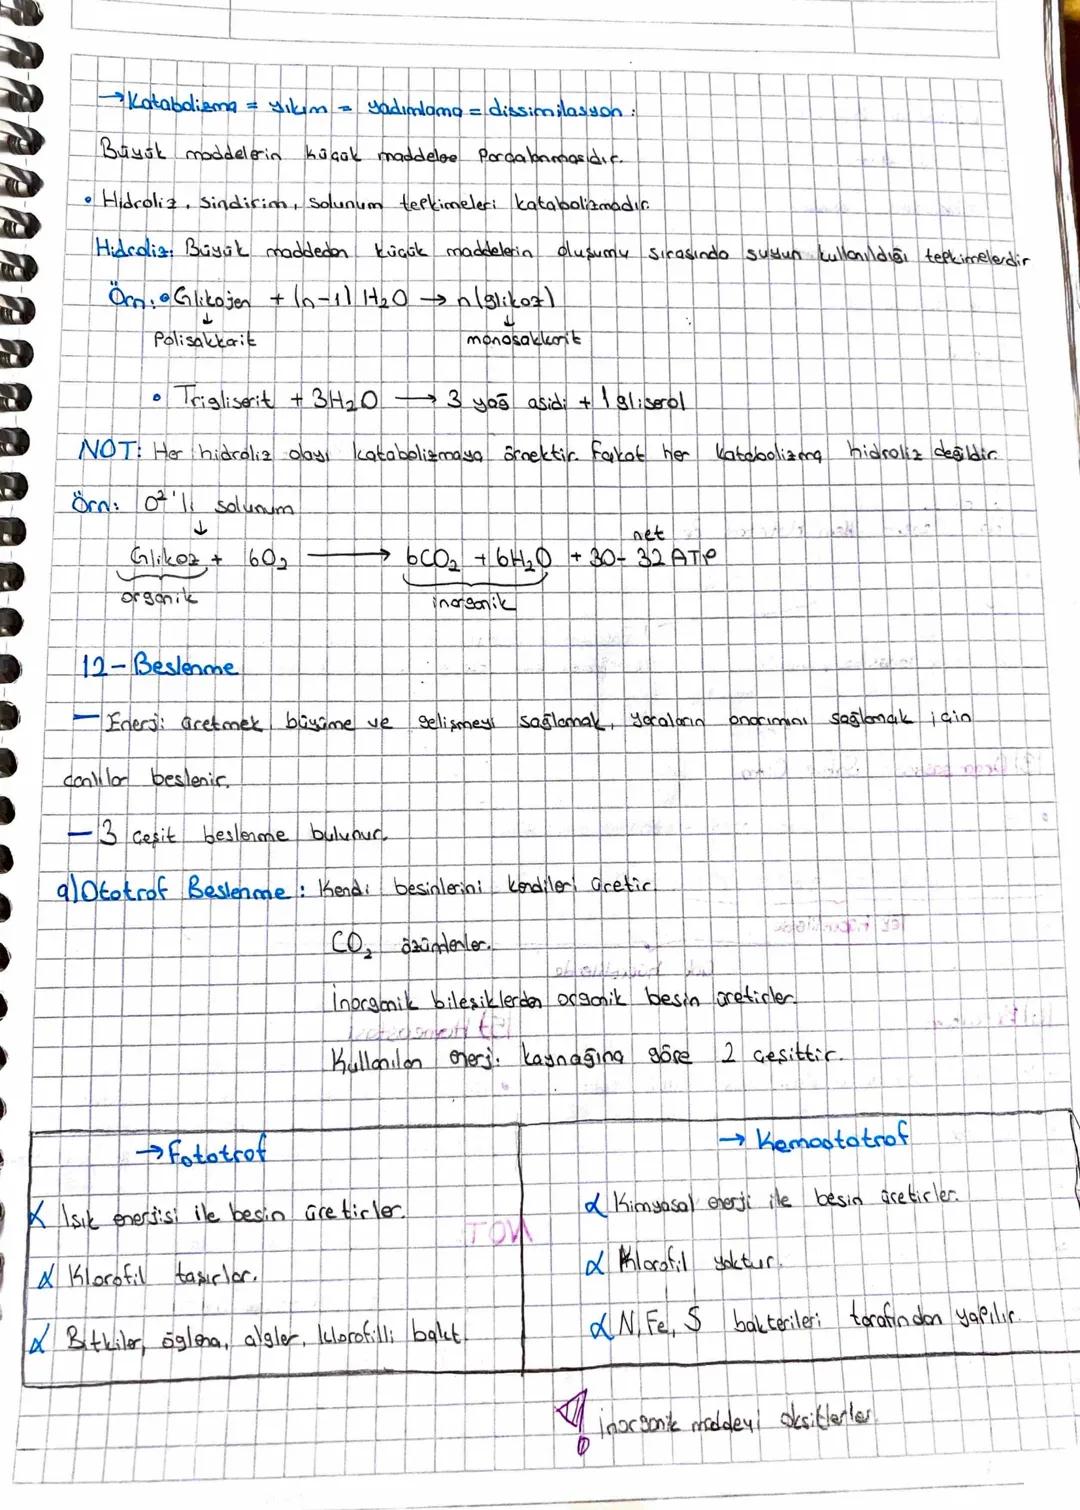 →Katabolizma = yıkım = yadımlama = dissimilasyon :
Büyük maddelerin küçük maddelee Parçalanmasıdır.
• Hidroliz, sindirim, solunum tepkimeleri katabolizmadır.
Hidroliz: Büyük maddeden küçük maddelerin oluşumu sırasında suyun kullanıldığı tepkimelerdir
Örn: • Glikojen + (n-1) H₂O → n(glikoz)
↓ ↓
Polisakkarit monosakkarit
• Trigliserit + 3H₂O → 3 yağ asidi + 1 gliserol
NOT: Her hidroliz olayı katabolizmaya örnektir. Fakat her katabolizma hidroliz değildir.
Örn: O²'li solunum
↓ net
Glikoz + 6O₂ → 6CO₂ + 6H₂O + 30-32 ATP
organik inorganik
12- Beslenme
— Enerji üretmek, büyüme ve gelişmeyi sağlamak, yaraların onarımını sağlamak için
canlılar beslenir.
— 3 çeşit beslenme bulunur.
a) Ototrof Beslenme : Kendi besinlerini kendileri üretir.
CO₂ özümlerler.
İnorganik bileşiklerden organik besin üretirler.
Kullanılan enerji kaynağına göre 2 çeşittir.
→ Fototrof
α Işık enerjisi ile besin üretirler.
α Klorofil taşırlar.
α Bitkiler, öglena, algler, klorofilli bakt.
→ Kemoototrof
α Kimyasal enerji ile besin üretirler.
α Klorofil yoktur.
α N, Fe, S bakterileri tarafından yapılır.
inorganik maddeyi oksitlerler.